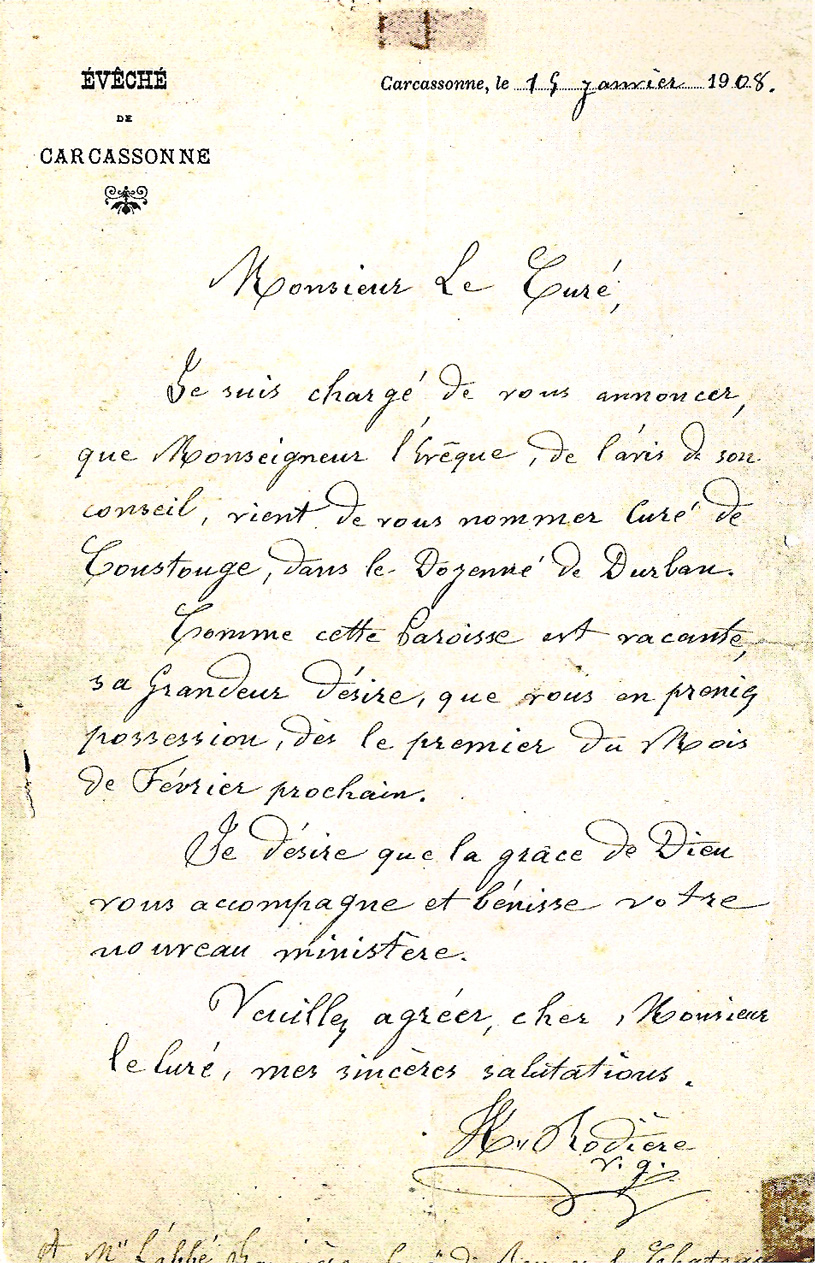 ÉVÊCHÉ
DE
CARCASSONNE
Carcassonne, le 15 janvier 1908.
Monsieur Le Curé,
Je suis chargé de vous annoncer,
que Monseigneur l'Evêque, de l'avis de son
conseil, vient de vous nommer Curé de
Coustouge, dans le Doyenné de Durban.
Comme cette Paroisse est vacante,
sa Grandeur désire, que vous en preniez
possession, dès le premier du Mois
de Février prochain.
Je désire que la grâce de Dieu
vous accompagne et bénisse votre
nouveau ministère.
Veuillez agréer, cher Monsieur
le Curé, mes sincères salutations.
Rodière
v. g.
A Mr L'abbé